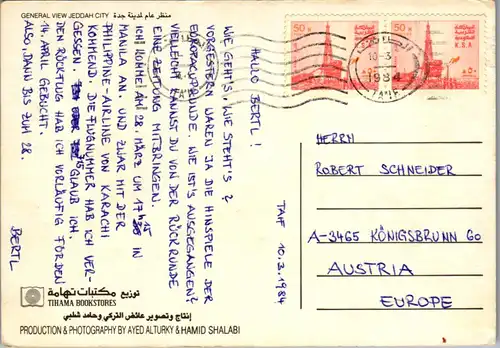 GENERAL VIEW JEDDAH CITY منظر عام لمدينة جدة
TAIF 10.3.1984
HALLO BERTL!
WIE GEHT'S, WIE STEHT'S?
VORGESTERN WAREN JA DIE HINSPIELE DER
EUROPACUPRUNDE. WIE IST'S AUSGEGANGEN?
VIELLEICHT KANNST DU VON DER RÜCKRUNDE
EINE ZEITUNG MITBRINGEN.
ICH KOMME AM 28. MÄRZ UM 17h 15 IN
MANILA AN. UND ZWAR MIT DER
PHILIPPINE-AIRLINE VON KARACHI
KOMMEND. DIE FLUGNUMMER HAB ICH VER-
GESSEN. 75 GLAUB ICH.
DEN RÜCKFLUG HAB ICH VORLÄUFIG FÜR DEN
14. APRIL GEBUCHT.
ALSO DANN BIS ZUM 28.
BERTL
50
50
K.S.A
10-3
1984
TA'IF
HERRN
ROBERT SCHNEIDER
A-3465 KÖNIGSBRUNN 60
AUSTRIA
EUROPE
توزيع مكتبات تهامة
TIHAMA BOOKSTORES
إنتاج وتصوير عائض التركي وحامد شلبي
PRODUCTION & PHOTOGRAPHY BY AYED ALTURKY & HAMID SHALABI